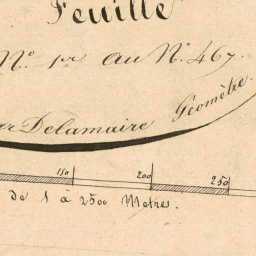 Feuille
N.º 1.er au N.º 467.
Delamaire Géomètre.
150 200 250
de 1 à 2500 Mètres.